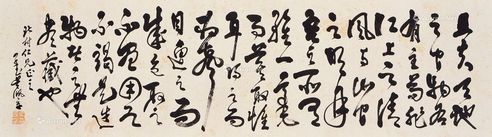 且夫天地
之中物各
有主苟非
江上之清
風與山間
之明月
吾之所
雖一毫
而莫取惟
耳得之而
為聲
目遇之而
成色取之
不禁用之
不竭是造
物者之無
盡藏也